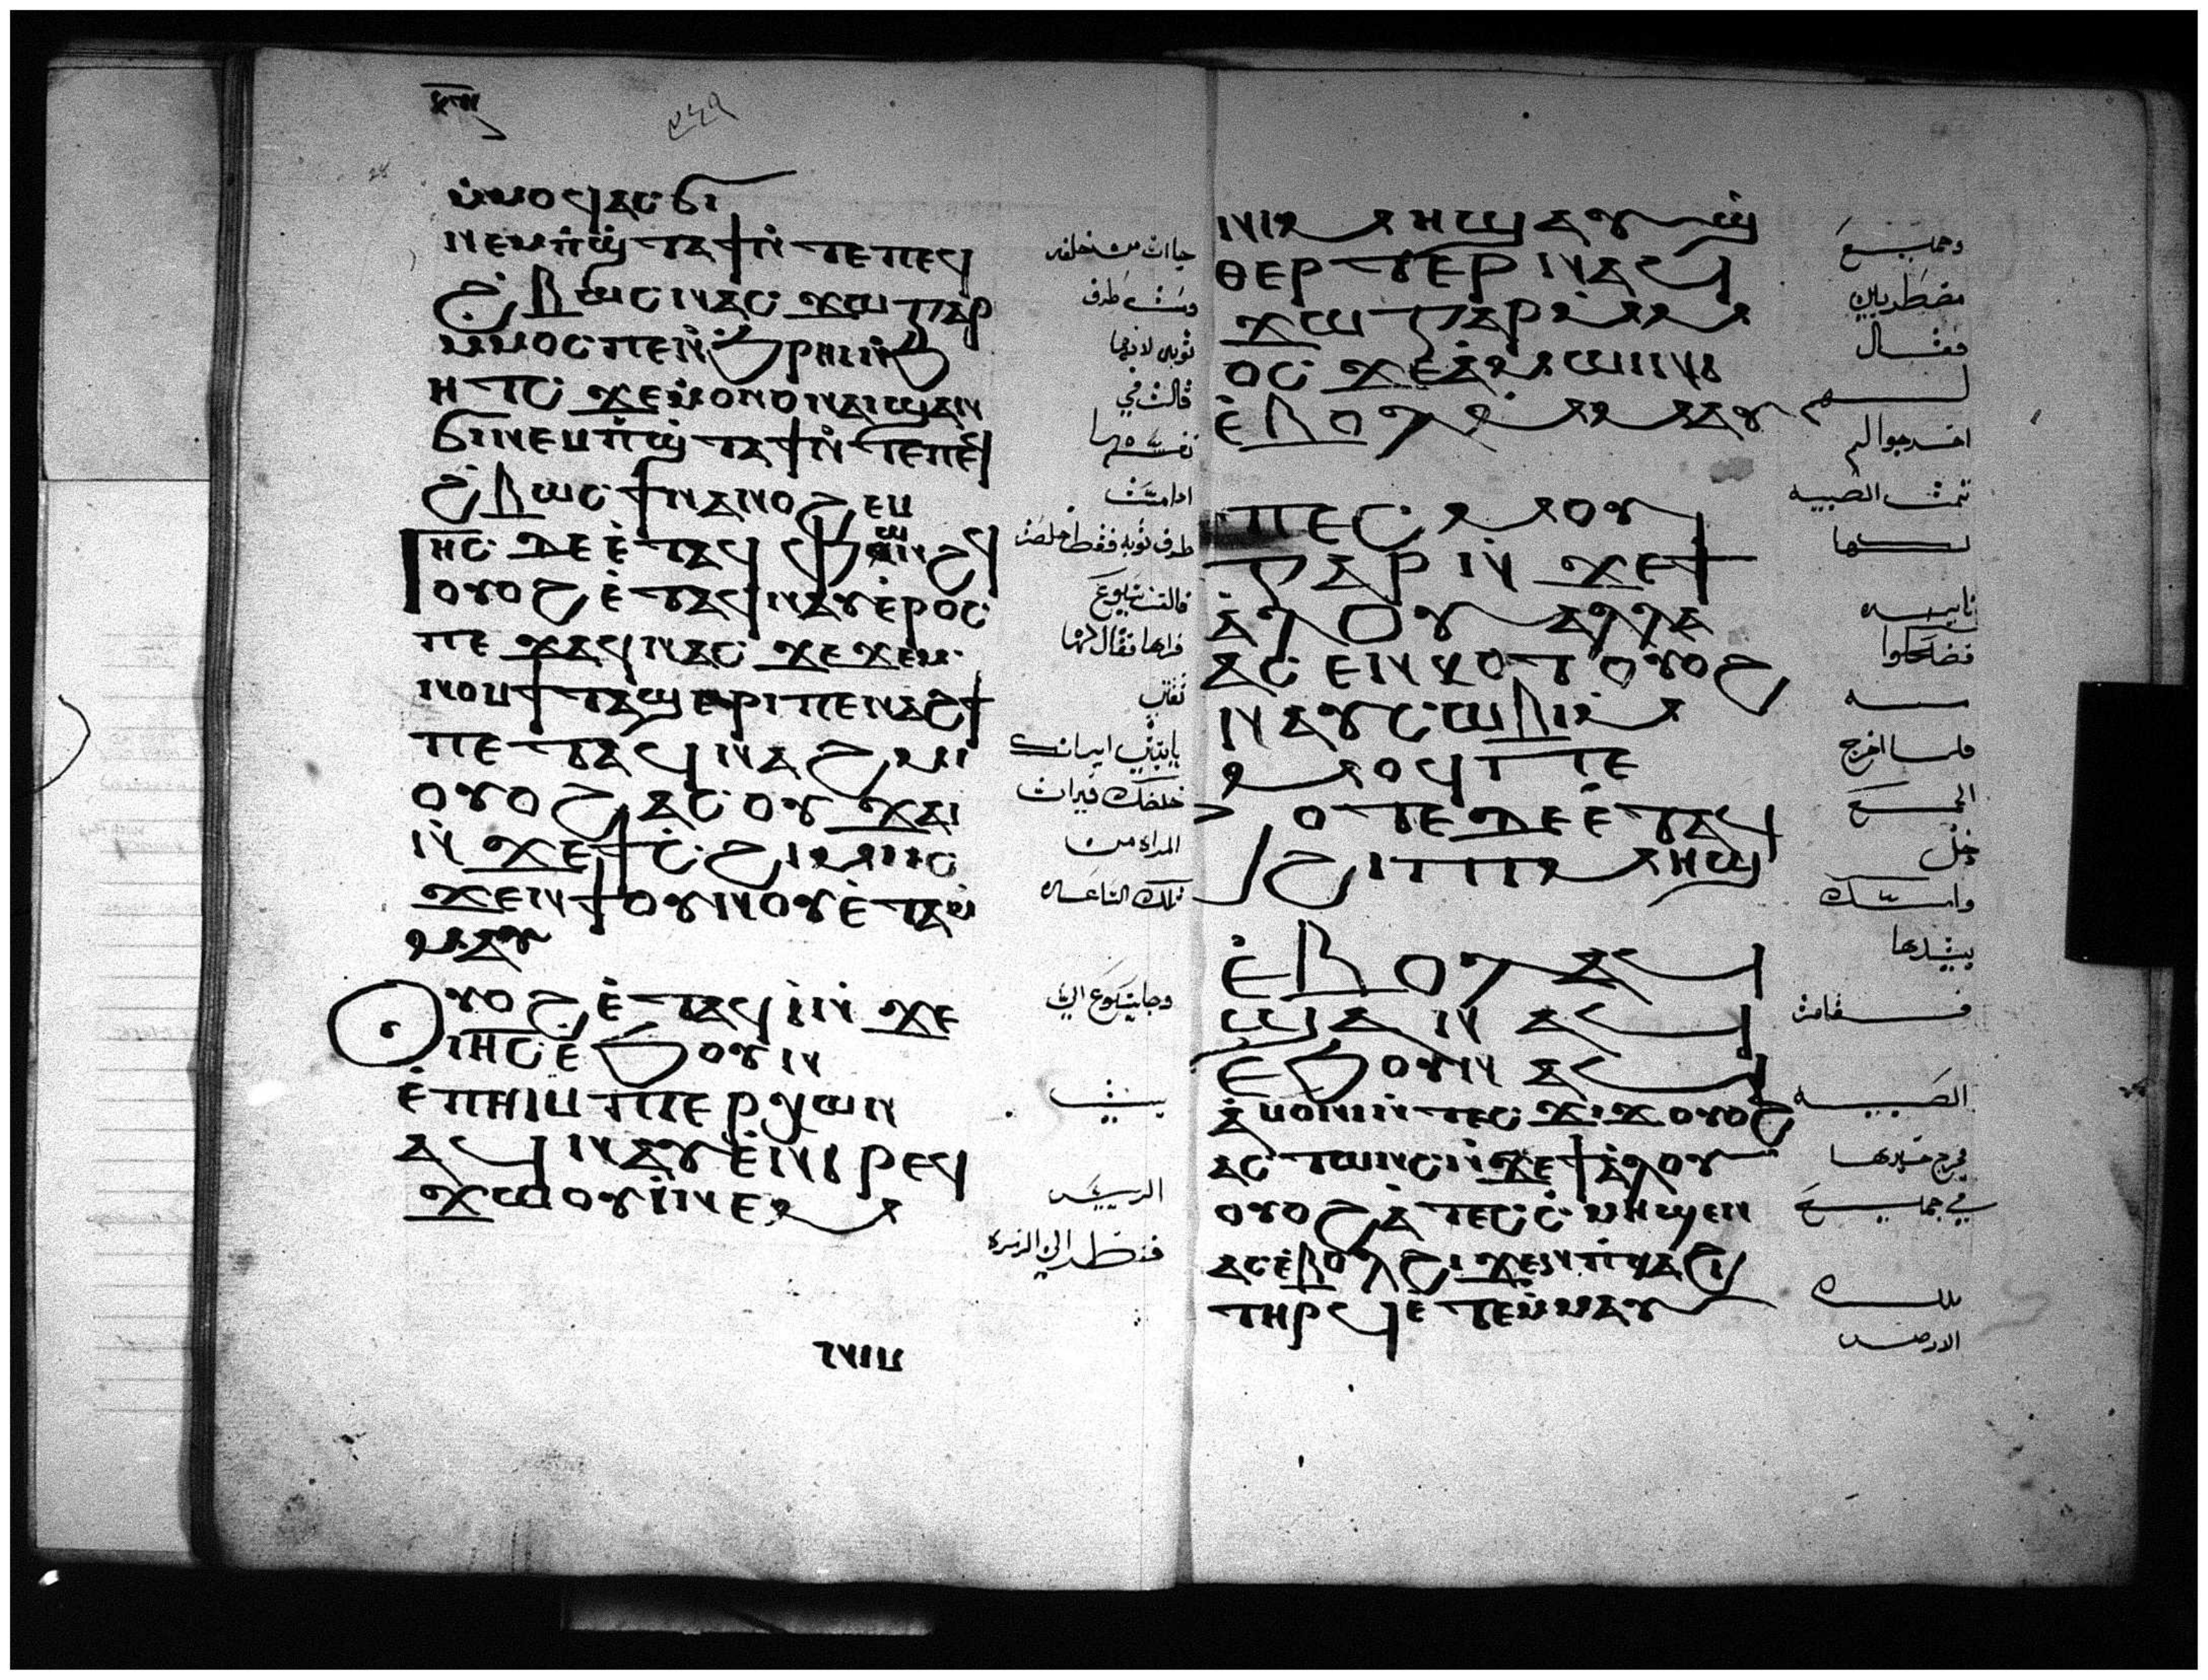 ٢٤٩
ⲙ̀ⲙⲟϥ ⲁⲥϭⲓ
ⲛⲉⲙ ⲡ̀ϣ̀ⲧⲁϯ ⲛ̀ⲧⲉ ⲡⲉϥ
ϩ̀ⲃⲱⲥ ⲛⲁⲥ ϫⲱ ⲅⲁⲣ
ⲙ̀ⲙⲟⲥ ⲡⲉ ⲛ̀ϧⲣⲏⲓ ⲛ̀ϧ
ⲏⲧⲥ ϫⲉ ⲙ̀ⲟⲛⲟⲛ ⲁⲓϣⲁⲛ
ϭⲓ ⲛⲉⲙ ⲡ̀ϣ̀ⲧⲁϯ ⲛ̀ⲧⲉ ⲡⲉϥ
ϩ̀ⲃⲱⲥ ϯⲛⲁⲛⲟϩⲉⲙ
ⲓⲏⲥ ⲇⲉ ⲉ̀ⲧⲁϥ ⲫⲱⲛϩϥ
ⲟⲩⲟϩ ⲉ̀ⲧⲁϥⲛⲁⲩ ⲉ̀ⲣⲟⲥ
ⲡⲉϫⲁϥ ⲛⲁⲥ ϫⲉ ϫⲉⲙ
ⲛⲟⲙϯ ⲧⲁϣⲉⲣⲓ ⲡⲉⲛⲁϩϯ
ⲡⲉⲧⲁϥⲛⲁϩⲙⲓ
ⲟⲩⲟϩ ⲁⲥⲟⲩϫⲁⲓ
ⲛ̀ϫⲉ ϯⲥ̀ϩⲓⲙⲓ ⲓⲥ
ϫⲉⲛ ϯⲟⲩⲛⲟⲩ ⲉ̀ⲧⲁⲙ̀
ⲙⲁⲩ
ⲟⲩⲟϩ ⲉ̀ⲧⲁϥⲓ̀ ⲛ̀ϫⲉ
ⲓⲏⲥ ⲉ̀ϧⲟⲩⲛ
ⲉ̀ⲡⲏⲓ ⲙⲡⲉⲣⲭⲱⲛ
ⲁϥⲛⲁⲩ ⲉ̀ⲛⲓⲣⲉϥ
ϫⲱ ⲟⲩⲓ̀ⲛⲉⲙ
ⲛⲓⲙ
جاات من خلفه
ومست طرف
ثوبه لانها
قالت في
نفسها
اذا مسست
طرف ثوبه فقط خلصت
فالتفت يسوع
فراها فقال لها
ثقي
يا ابنتي ايمانك
خلصك فبرات
المراه من
تلك الساعه
وجا يسوع الي
بيت
الرييس
فنظر الي الزمره
ⲛⲓⲙⲏϣ ⲁⲩϣ̀
ⲑⲉⲣⲧⲉⲣ ⲛⲁϥ
ϫⲱ ⲅⲁⲣ ⲙ̀ⲙ
ⲟⲥ ϫⲉ ⲁ̀ⲙⲱⲓⲛⲓ
ⲉ̀ⲃⲟⲗ ⲙ̀ⲙⲁⲩ
ⲙⲡⲉⲥⲙⲟⲩ
ⲅⲁⲣ ⲛ̀ϫⲉ ϯ
ⲁ̀ⲗⲟⲩ ⲁⲗⲗⲁ
ⲁⲥⲉⲛⲕⲟⲧ ⲟⲩⲟϩ
ⲛⲁⲩⲥⲱⲃⲓ ⲙ
ⲙⲟϥ ⲡⲉ
ϩⲟⲧⲉ ⲇⲉ ⲉ̀ⲧⲁϥ
ϩⲓ ⲡⲓⲙⲏϣ
ⲉ̀ⲃⲟⲗ ⲁϥ
ϣⲁⲛ ⲁϥ
ⲉ̀ϧⲟⲩⲛ ⲁϥ
ⲁ̀ⲙⲟⲛⲓ ⲛ̀ⲧⲉⲥϫⲓϫ ⲟⲩⲟϩ
ⲁⲥⲧⲱⲛⲥ ⲛ̀ϫⲉ ϯⲁ̀ⲗⲟⲩ
ⲟⲩⲟϩ ⲁ̀ ⲧⲉⲥⲥ̀ⲙⲏ ϣⲉⲛ
ⲁⲥ ⲉ̀ⲃⲟⲗ ϩⲓϫⲉⲛ ⲡ̀ⲕⲁϩⲓ
ⲧⲏⲣϥ ⲉ̀ⲧⲉⲙ̀ⲙⲁⲩ
وجميع
مضطربين
فقال
لهم
اخرجوا لم
تمت الصبيه
لكنها
نايمه
فضحكوا
منه
فلما اخرج
الجمع
دخل
وامسك
بيدها
فقامت
الصبيه
فخرج خبرها
في جميع
تلك
الارض